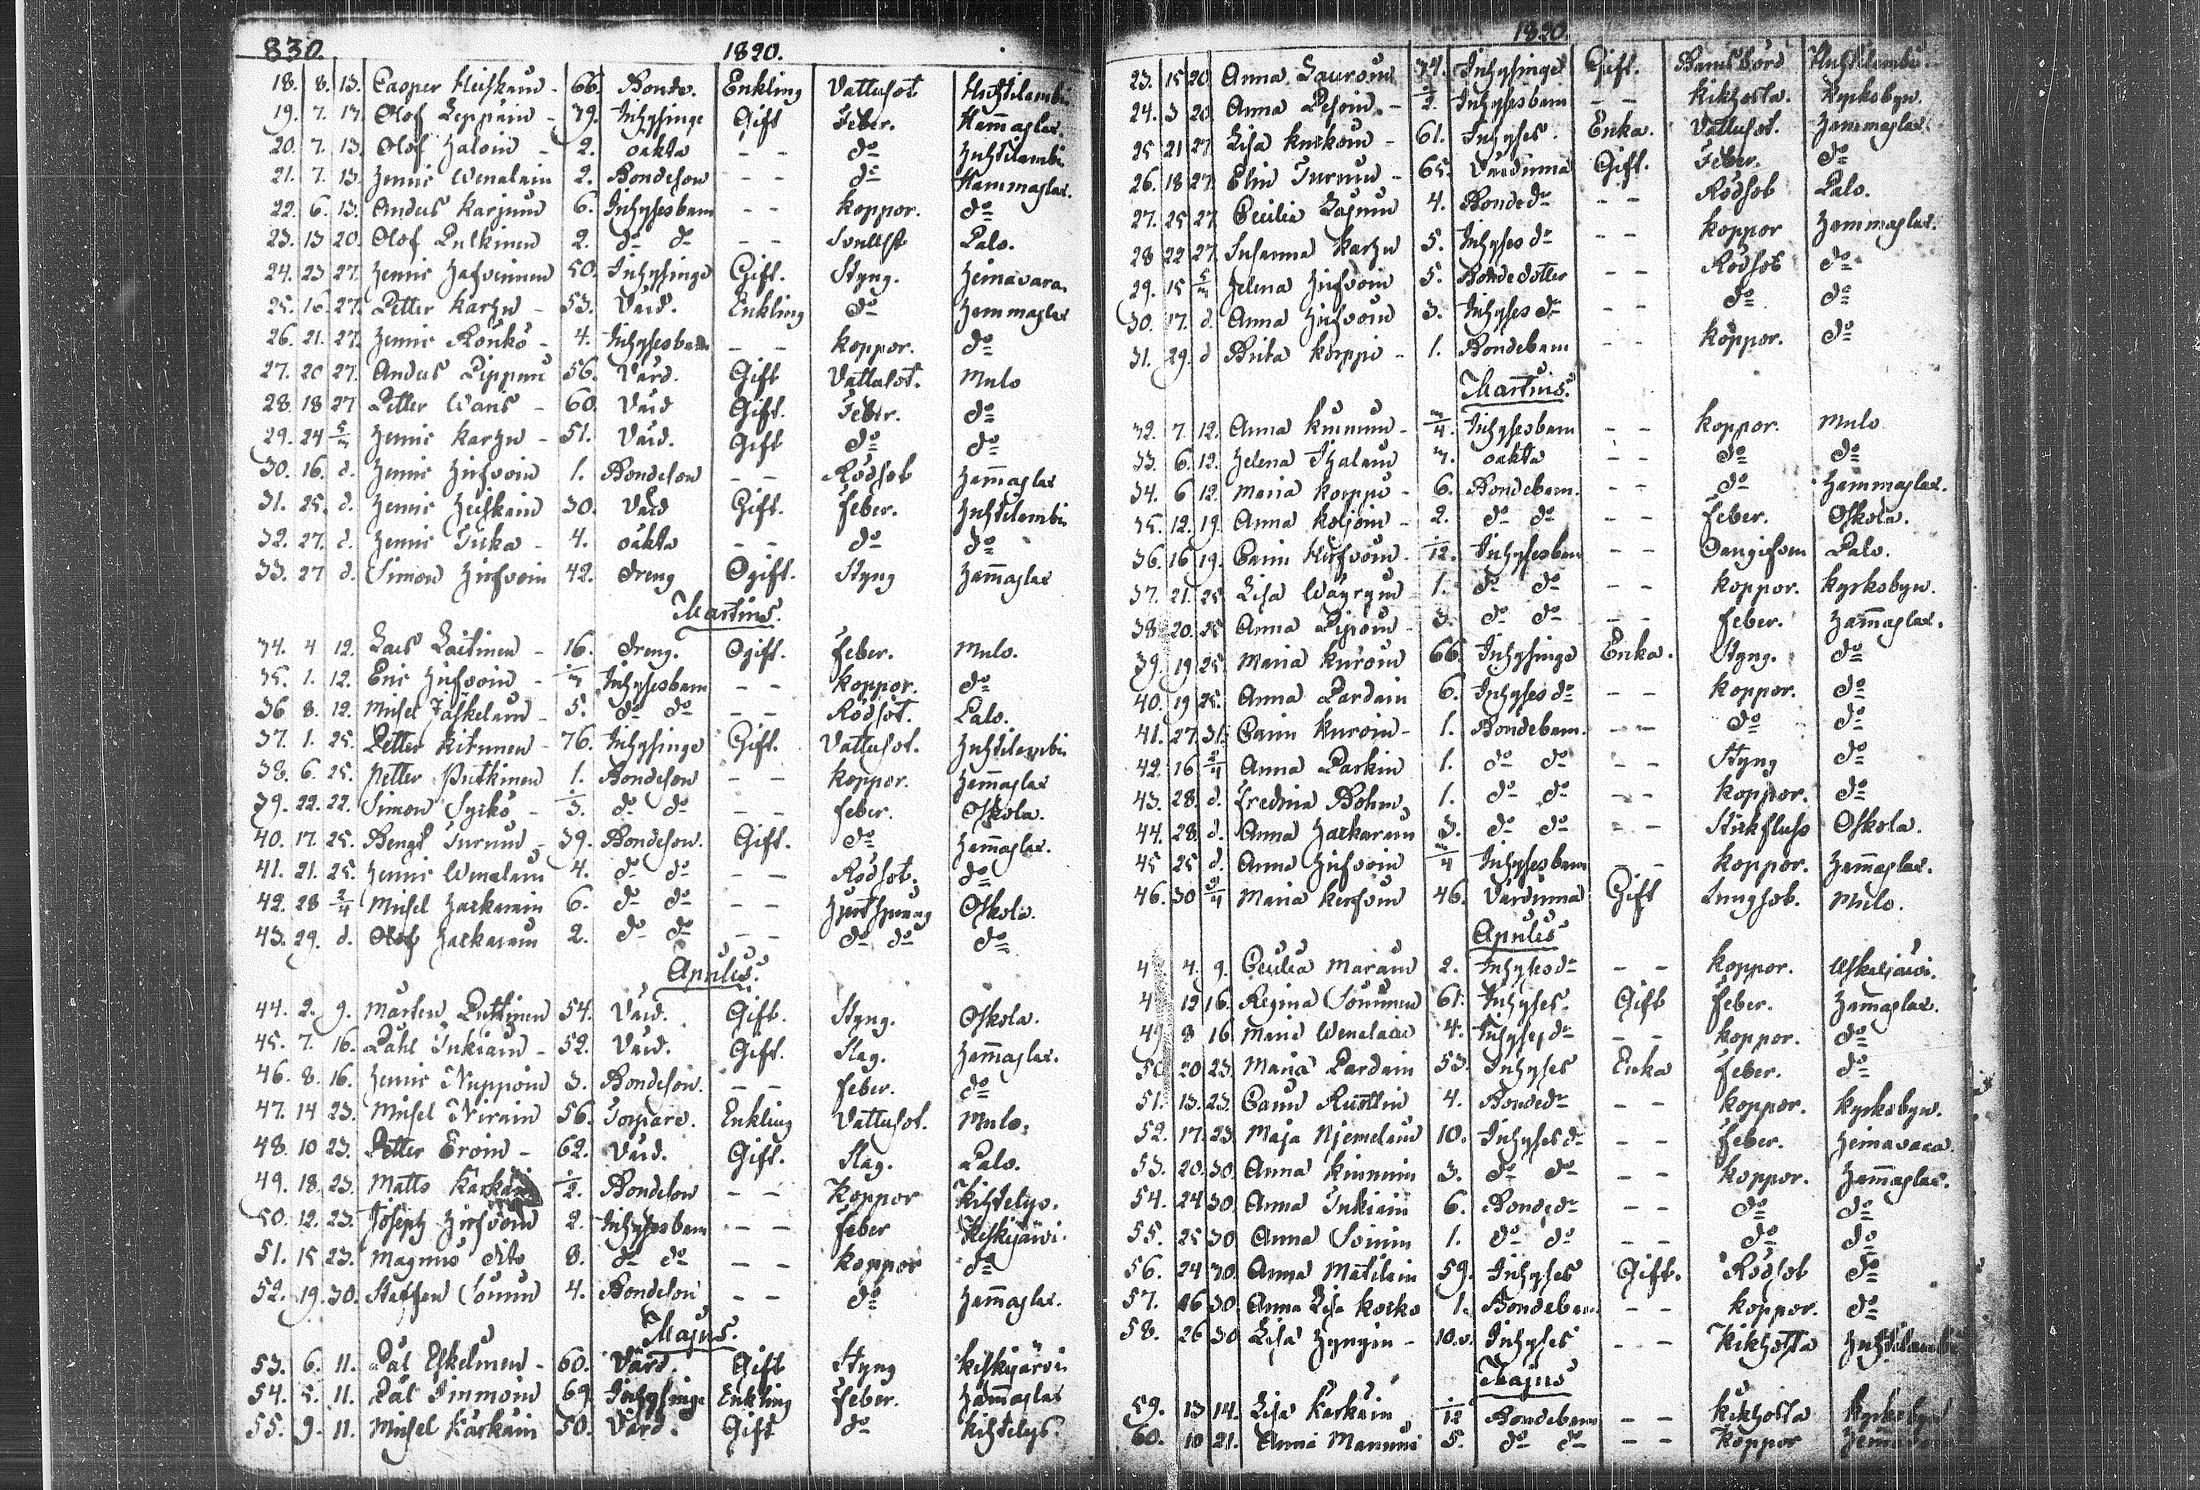 830.
1820.
18. 8. 13. Casper Heiskain - 66. Bonde. Enkling Vattusot Huhtilambi
19. 7. 13. Olof Leppäin - 39. Inhysinge Gift Feber. Hammaslax.
20. 7. 13. Olof Haloin - 2. oäkta - - do Huhtilambi
21. 7. 13. Henric Wenäläin 2. Bondeson - - do Hammaslax.
22. 6. 13. Anders Karjuin 6. Inhysesbarn - - koppor. do
23. 13 20. Olof Pulkinen 2. do do - - Palo.
24. 23 27. Henric 50. Inhysinge Gift. Styng. Heinävara.
25. 16. 27. Petter Karhu - 53. Värd. Enkling do Hammaslax
26. 21. 27. Henric Rönkö - 4. Inhysesbarn - - koppor. do
27. 20 27. Anders Pippuri 56. Värd. Gift Vattusot. Mulo
28. 18 27 Petter 60. Värd Gift. Feber. do
29. 24 5/m Henric Karhu - 51. Värd. Gift do do
30. 16. d. Henric Hirfvoin 1. Bondeson - - Rödsot Hammaslax
31. 25. d. Henric Heiskain 30. Värd Gift. feber. Huhtilambi
32. 27. d. Henric 4. oäkta - - do do
33. 27 d. Simon Hirfvoin 42. dreng Ogift. Styng Hammaslax
Martius.
34. 4 12. Lars Laitinen - 16. dreng. Ogift. feber. Mulo.
35. 1. 12. Eric Hirfvoin - Inhysesbarn - - koppor. do
36 8. 12. Michel Jäskeläin - 5. do do - - Rödsot. Palo.
37. 1. 25. Petter Kitunen - 76. Inhysinge Gift. Vattusot. Huhtilambi
38. 6. 25. Petter Putkinen 1. Bondeson - - koppor. Hammaslax
39. 22. 22. Simon 3. do do - - feber. Oskola.
40. 17. 25. Bengt Turuin 39. Bondeson. Gift. do Hammaslax.
41. 21. 25. Henric Wenäläin 4. do do - - Rödsot. do
42. 28 2/4 Michel Harkarain 6. do do - - Oskola.
43. 29. d. Olof Harkarain 2. do do - - do do do
Aprilis.
44. 2. 9. Mårten Puttinen 54. Värd. Gift. Styng. Oskola.
45. 7. 16. Påhl Inkiäin - 52. Värd. Gift. Slag. Hammaslax.
46. 8. 16. Henric Nuppoin 3. Bondeson. - - feber. do
47. 14 23. Michel Nirain 56. Torpare. Enkling Vattusot. Mulo.
48. 10 23. Petter Eroin - 62. Värd. Gift. Slag. Palo.
49. 18. 23. Matts 2. Bondeson - - koppor Kihtelys.
50. 12. 23. Joseph Hirfvoin 2. Inhysesbarn - - feber Keskijärvi.
51. 15 23. Magnus dito 8. do do - - koppor do
52. 19. 30. Staffan Soinin 4. Bondeson - - do Hammaslax.
Majus.
53. 6. 11. Pål Eskelinen - 60. Värd. Gift Styng keskijärvi
54. 5. 11. Pål Timmoin 69. Inhysinge Enkling feber. Hammaslax
55. 9. 11. Michel Kärkäin 50. Värd. Gift do Kihtelys.
1820.
23. 15 20. Anna Lauroin 74. Inhysinge Gift. Barnsbörd Huhtilambi.
24. 3 20. Anna Pesoin - 2. Inhysesbarn - - kikhosta. Kyrkobyn.
25 21 27. Lisa Kuikoin - 61. Inhyses. Enka. Vattusot. Hammaslax.
26. 18 27. Elin Turuin - 65. Värdinna Gift. Feber. do
27. 25 27. Cecilia 4. Bonde dr - - Rödsot Palo.
28 22 27. Susanna Karhu 5. Inhyses dr - - koppor Hammaslax.
29. 15 5/m Helena Hirfvoin 5. Bondedotter - - Rödsot do
30. 17. d. Anna Hirfvoin 3. Inhyses dr - - do do
31. 29. d Brita Korppi - 1. Bondebarn - - koppor. do
Martius.
32. 7. 12. Anna Kinnuin - m/4. Inhysesbarn - - koppor. Mulo
33. 6. 12. Helena Ihalain 7. oäkta - - do do
34. 6 12. Maria Korppi - 6. Bondebarn. - - do Hammaslax.
35. 12. 19. Anna Koljoin - 2. do do - - feber. Oskola.
36. 16 19. Carin Hirfvoin - 12. Inhysesbarn - - Oangifven Palo.
37. 21. 25 Lisa Wäyryin - 1. do do - - koppor. Kyrkobyn.
38. 20. 25 Anna Piipoin - 3. do do - - feber. Hammaslax.
39. 19 25. Maria Kuroin 66. Inhysinge Enka. Styng. do
40. 19 25. Anna Pardain 6. Inhyses dr - - koppor. do
41. 27. 31. Carin Kuroin - 1. Bondebarn. - - do do
42. 16 2/4 Anna Parkin 1. do do - - Styng do
43. 28. d. Fredrica Bohm 1. do do - - koppor. do
44. 28. d. Anna Harkarain 3. do do - - Stickfluss Oskola.
45 25 d. Anna Hirfvoin m/4 Inhysesbarn - - koppor. Hammaslax.
46. 30 Maria 46. Värdinna Gift Lungsot. Mulo.
Aprilis
4 4. 9. Cecilia Marain 2. Inhyses dr - - koppor.
4 12 16. Regina Soininen 61. Inhyses. Gift feber. Hammaslax.
49 8 16 Maria Wenäläin 4. Inhyses dr - - koppor. do
50 20 23. Maria Pardain 53. Inhyses Enka feber. do
51. 13. 23. Carin 4. Bonde dr - - koppor. Kyrkobyn.
52. 17. 23 Maja Njemeläin 10. Inhyses dr - - feber. Heinävara.
53. 20. 30 Anna Kinnuin 3. do do - - koppor. Hammaslax.
54. 24 30. Anna Inkiäin 6. Bonde dr - - do do
55. 25 30 Anna Soinin 1. do do - - do do
56. 24 30. Anna Matilain 59. Inhyses Gift. Rödsot do
57. 16 30. Anna Lisa Korko 1. Bondebarn - - koppor. do
58. 26 30 Lisa Hyngin - 10. Inhyses - - Kikhosta Huhtilambi
Majus
59. 13 14. Lisa Kärkäin 12 Bondebarn - - kikhosta Kyrkobyn
60. 10 21. Anna Manuin 5. do do - - koppor